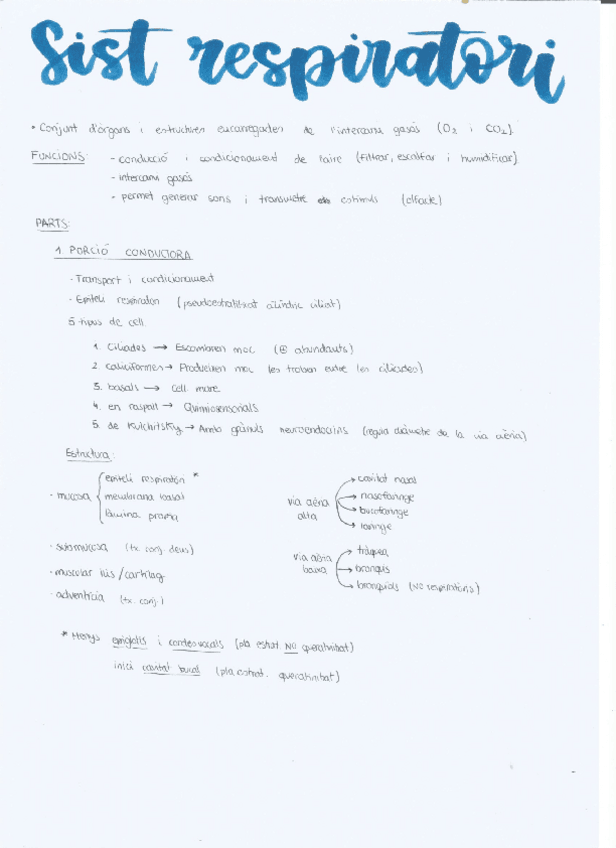 Sist respiratori
• Conjunt d'òrgans i estructures encarregades de l'intercanvi gasós (O2 i CO2).
FUNCIONS: - conducció i condicionament de l'aire (filtrar, escalfar i humidificar)
- intercanvi gasós
- permet generar sons i transmetre estímuls (olfacte)
PARTS:
1. PORCIÓ CONDUCTORA
- Transport i condicionament
- Epiteli respiratori (pseudoestratificat cilíndric ciliat)
5 tipus de cell
1. Ciliades → Escombren moc (⊕ abundants)
2. caliciformes → Produeixen moc (es troben entre les ciliades)
3. basals → cell mare
4. en raspall → Quimiosensorials
5. de Kulchitsky → Amb grànuls neuroendocrins (regula diàmetre de la via aèria)
Estructura:
- mucosa { epiteli respiratori *
membrana basal
làmina pròpia
- submucosa (tx. conj. dens)
- muscular llis / cartílag
- adventícia (tx. conj.)
via aèria alta → cavitat nasal
→ nasofaringe
→ bucofaringe
→ laringe
via aèria baixa → tràquea
→ bronquis
→ bronquíols (NO respiratoris)
* Menys epiglotis i cordes vocals (pla estrat. NO queratinitzat)
inici cavitat bucal (pla estrat. queratinitzat)